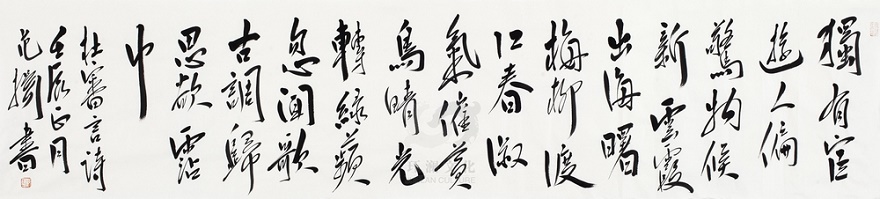 獨有宦
遊人偏
驚物候
新雲霞
出海曙
梅柳渡
江春淑
氣催黃
鳥晴光
轉綠蘋
忽聞歌
古調歸
思欲霑
巾
杜審言詩
壬辰正月
范書